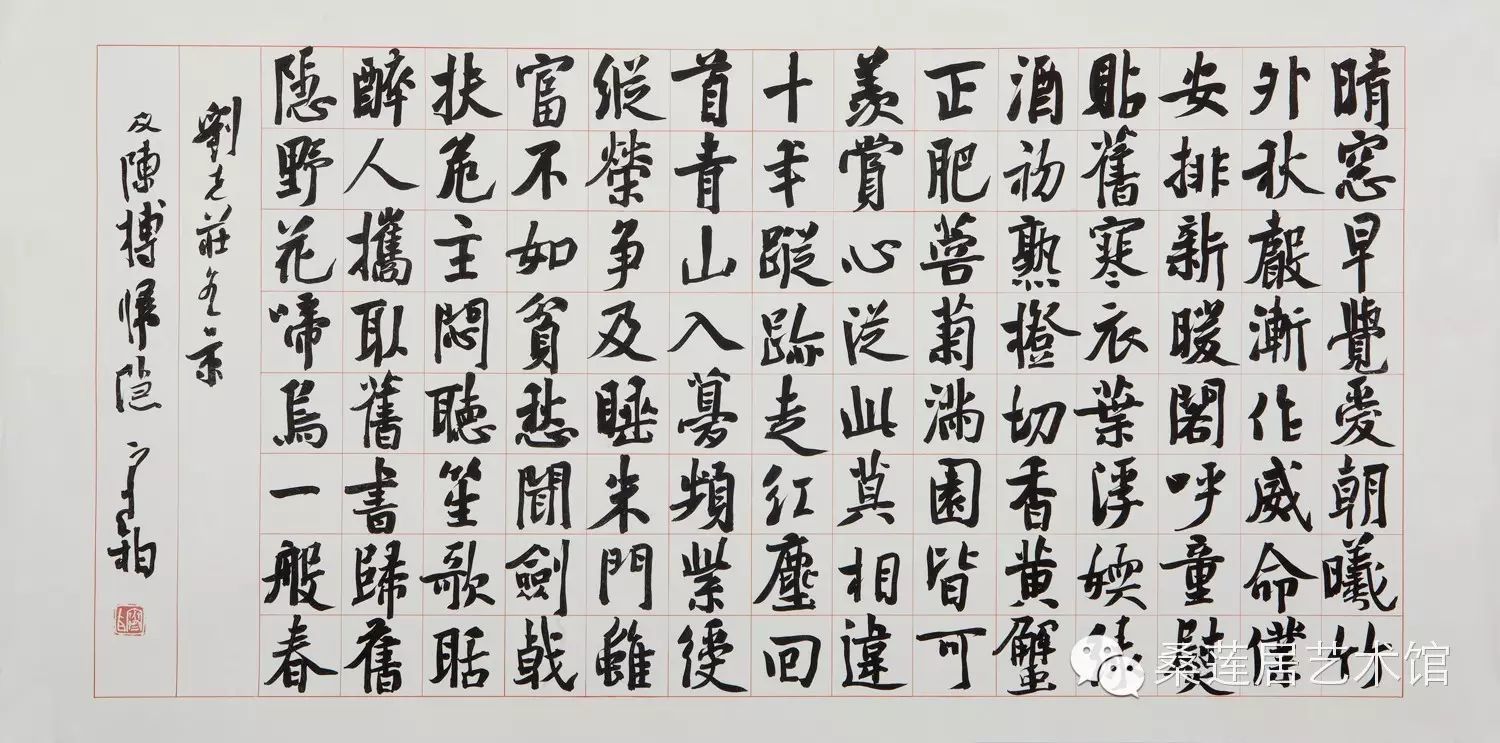 晴窓早覺愛朝曦竹
外秋嚴漸作威命僕
安排新暖閣呼童熨
貼舊寒衣葉浮嫰綠
酒初熟橙切香黄蟹
正肥蓉菊滿園皆可
羨賞心從此莫相違
十年蹤跡走红塵回
首青山入夢頻紫綬
縱榮争及睡朱門雖
富不如貧愁聞劍戟
扶危主悶聽笙歌聒
醉人攜取舊書歸舊
隱野花啼鳥一般春
劉克莊冬景
及陳摶歸隐
桑莲居艺术馆